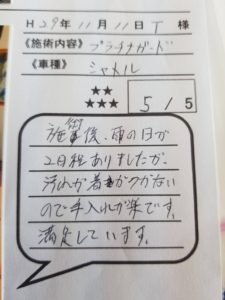 H29年11月11日 T 様
《施術内容》 プラチナガード
《車種》 シャトル
★★
★★★
5/5
施術後、雨の日が
2日程ありましたが、
汚れが着がつかない
ので手入れが楽です。
満足しています。